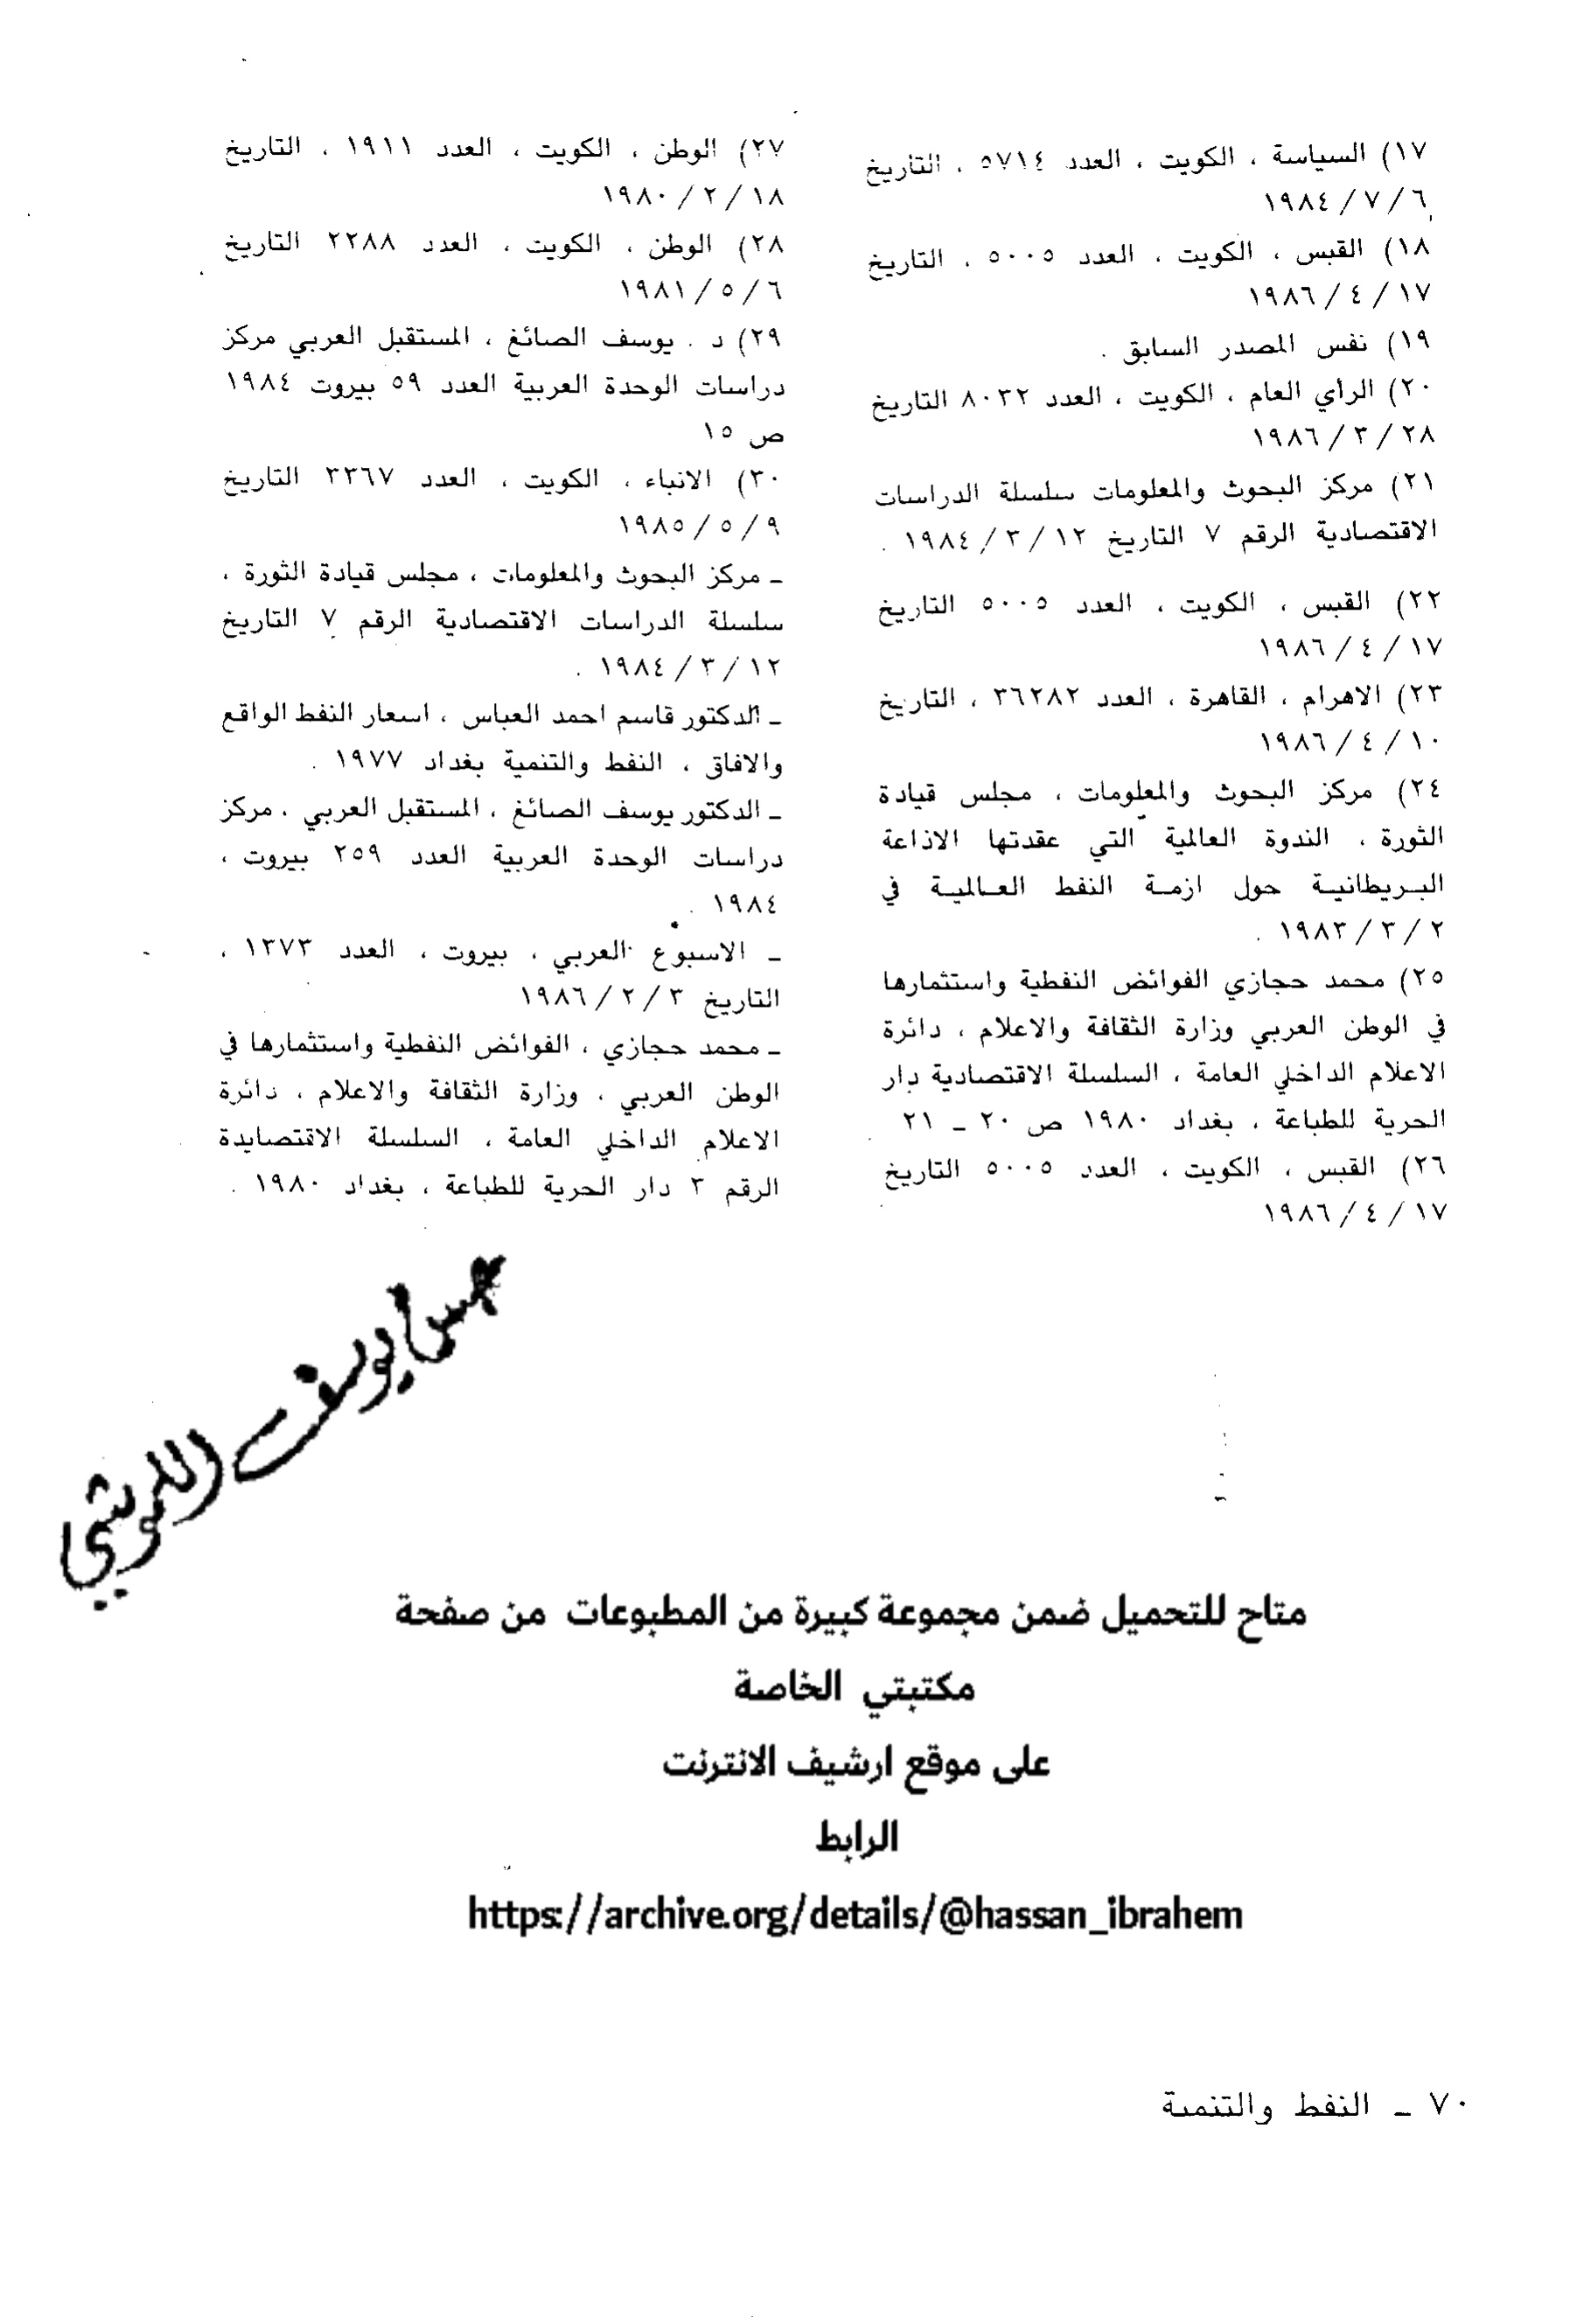 ١٧) السياسة ، الكويت ، العدد ٥٧١٤ ، التاريخ
٦ / ٧ / ١٩٨٤
١٨) القبس ، الكويت ، العدد ٥٠٠٥ ، التاريخ
١٧ / ٤ / ١٩٨٦
١٩) نفس المصدر السابق .
٢٠) الرأي العام ، الكويت ، العدد ٨٠٣٢ التاريخ
٢٨ / ٣ / ١٩٨٦
٢١) مركز البحوث والمعلومات سلسلة الدراسات
الاقتصادية الرقم ٧ التاريخ ١٢ / ٣ / ١٩٨٤ .
٢٢) القبس ، الكويت ، العدد ٥٠٠٥ التاريخ
١٧ / ٤ / ١٩٨٦
٢٣) الاهرام ، القاهرة ، العدد ٣٦٢٨٢ ، التاريخ
١٠ / ٤ / ١٩٨٦
٢٤) مركز البحوث والمعلومات ، مجلس قيادة
الثورة ، الندوة العالمية التي عقدتها الاذاعة
البريطانية حول ازمة النفط العالمية في
٢ / ٣ / ١٩٨٣ .
٢٥) محمد حجازي الفوائض النفطية واستثمارها
في الوطن العربي وزارة الثقافة والاعلام ، دائرة
الاعلام الداخلي العامة ، السلسلة الاقتصادية دار
الحرية للطباعة ، بغداد ١٩٨٠ ص ٢٠ ــ ٢١
٢٦) القبس ، الكويت ، العدد ٥٠٠٥ التاريخ
١٧ / ٤ / ١٩٨٦
٢٧) الوطن ، الكويت ، العدد ١٩١١ ، التاريخ
١٨ / ٢ / ١٩٨٠
٢٨) الوطن ، الكويت ، العدد ٢٢٨٨ التاريخ
٦ / ٥ / ١٩٨١
٢٩) د . يوسف الصائغ ، المستقبل العربي مركز
دراسات الوحدة العربية العدد ٥٩ بيروت ١٩٨٤
ص ١٥
٣٠) الانباء ، الكويت ، العدد ٣٣٦٧ التاريخ
٩ / ٥ / ١٩٨٥
ــ مركز البحوث والمعلومات ، مجلس قيادة الثورة ،
سلسلة الدراسات الاقتصادية الرقم ٧ التاريخ
١٢ / ٣ / ١٩٨٤ .
ــ الدكتور قاسم احمد العباس ، اسعار النفط الواقع
والافاق ، النفط والتنمية بغداد ١٩٧٧ .
ــ الدكتور يوسف الصائغ ، المستقبل العربي ، مركز
دراسات الوحدة العربية العدد ٢٥٩ بيروت ،
١٩٨٤ .
ــ الاسبوع العربي ، بيروت ، العدد ١٣٧٣ ،
التاريخ ٣ / ٢ / ١٩٨٦
ــ محمد حجازي ، الفوائض النفطية واستثمارها في
الوطن العربي ، وزارة الثقافة والاعلام ، دائرة
الاعلام الداخلي العامة ، السلسلة الاقتصايدة
الرقم ٣ دار الحرية للطباعة ، بغداد ١٩٨٠ .
يوسف
متاح للتحميل ضمن مجموعة كبيرة من المطبوعات من صفحة
مكتبتي الخاصة
على موقع ارشيف الانترنت
الرابط
https://archive.org/details/@hassan_ibrahem
٧٠ ــ النفط والتنمية